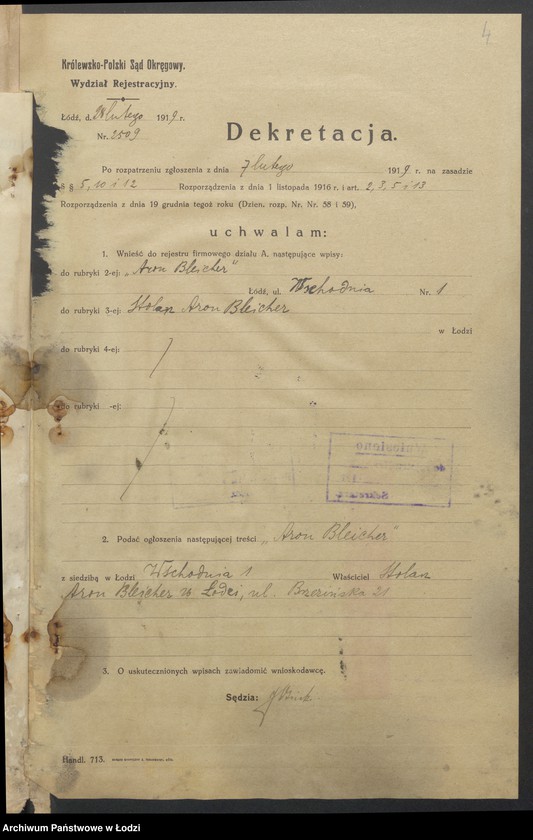 4
Królewsko-Polski Sąd Okręgowy.
Wydział Rejestracyjny.
Łódź, d. lutego 1919 r.
Nr. 2509
Dekretacja.
Po rozpatrzeniu zgłoszenia z dnia 7 lutego 1919 r. na zasadzie
§ § 5, 10 i 12 Rozporządzenia z dnia 1 listopada 1916 r. i art. 2, 3, 5 i 13
Rozporządzenia z dnia 19 grudnia tegoż roku (Dzien. rozp. Nr. Nr. 58 i 59),
uchwalam:
1. Wnieść do rejestru firmowego działu A. następujące wpisy:
do rubryki 2-ej: „Aron Bleicher”
Łódź, ul. Wschodnia Nr. 1
do rubryki 3-ej: Stolarz Aron Bleicher
w Łodzi
do rubryki 4-ej:
do rubryki -ej:
Wniesiono
Sekretarz
2. Podać ogłoszenia następującej treści „Aron Bleicher”
z siedzibą w Łodzi Wschodnia 1 Właściciel Stolarz
Aron Bleicher w Łodzi, ul. Brzezińska 21
3. O uskutecznionych wpisach zawiadomić wnioskodawcę.
Sędzia:
Handl. 713.
Archiwum Państwowe w Łodzi